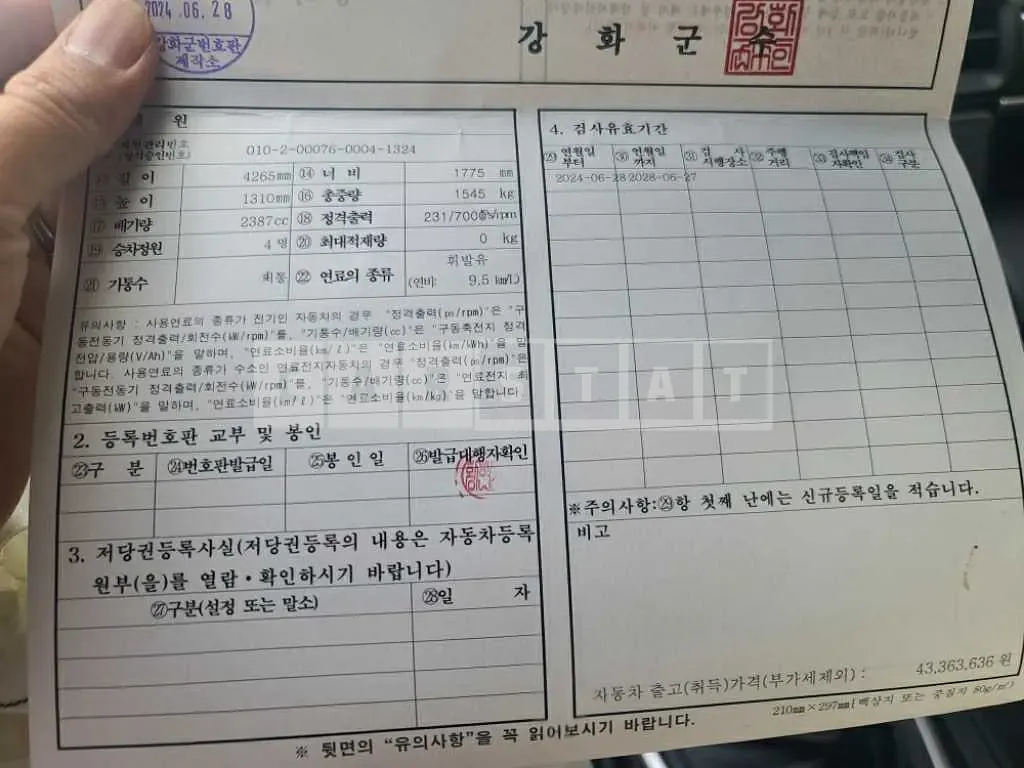 2024.06.28
강화군번호판
제작소
강 화 군 수
원
010-2-00076-0004-1324
길 이 4265mm ⑭ 너 비 1775 mm
높 이 1310mm ⑯ 총중량 1545 kg
⑰ 배기량 2387cc ⑱ 정격출력 231/7000ps/rpm
⑲ 승차정원 4 명 ⑳ 최대적재량 0 kg
㉑ 기통수 ㉒ 연료의 종류 휘발유
(연비: 9.5 km/L)
유의사항 : 사용연료의 종류가 전기인 자동차의 경우 "정격출력(ps/rpm)"은 "구
동전동기 정격출력/회전수(kW/rpm)"를, "기통수/배기량(cc)"은 "구동축전지 정격
전압/용량(V/Ah)"을 말하며, "연료소비율(km/ℓ)"은 "연료소비율(km/kWh)"을 말
합니다. 사용연료의 종류가 수소인 연료전지자동차의 경우 "정격출력(ps/rpm)"은
"구동전동기 정격출력/회전수(kW/rpm)"를, "기통수/배기량(cc)"은 "연료전지 최
고출력(kW)"을 말하며, "연료소비율(km/ℓ)"은 "연료소비율(km/kg)"을 말합니다.
2. 등록번호판 교부 및 봉인
㉓구 분 ㉔번호판발급일 ㉕봉 인 일 ㉖발급대행자확인
3. 저당권등록사실(저당권등록의 내용은 자동차등록
원부(을)를 열람·확인하시기 바랍니다)
㉗구분(설정 또는 말소) ㉘일 자
4. 검사유효기간
㉙ 연월일 부터 ㉚ 연월일 까지 ㉛ 검 사 시행장소 ㉜ 주행 거리 ㉝ 검사책임 자확인 ㉞ 검사 구분
2024-06-28 2028-06-27
※주의사항:㉙항 첫째 난에는 신규등록일을 적습니다.
비고
자동차 출고(취득)가격(부가세제외) : 43,363,636 원
210mm×297mm[백상지 또는 중질지 80g/㎡]
※ 뒷면의 "유의사항"을 꼭 읽어보시기 바랍니다.
T A T